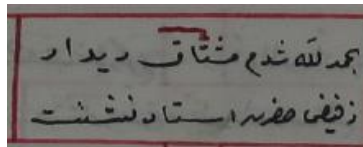 بحمدلله شدم مشتاق دیدار
رفیقی حضرت استاد نشست